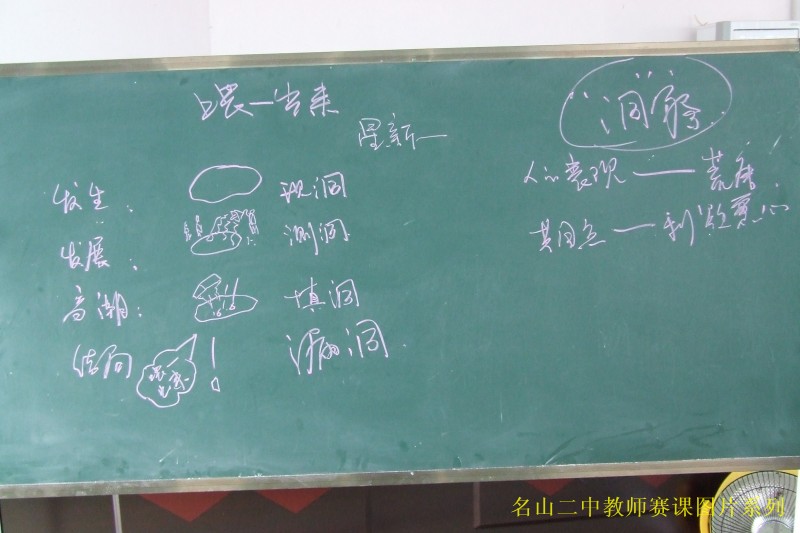 喂——出来
星新一
发生： 现洞
发展： 测洞
高潮： 填洞
结局 喂出来！ 漏洞
"洞"察
人的表现——荒唐
共同点——利欲熏心
名山二中教师赛课图片系列